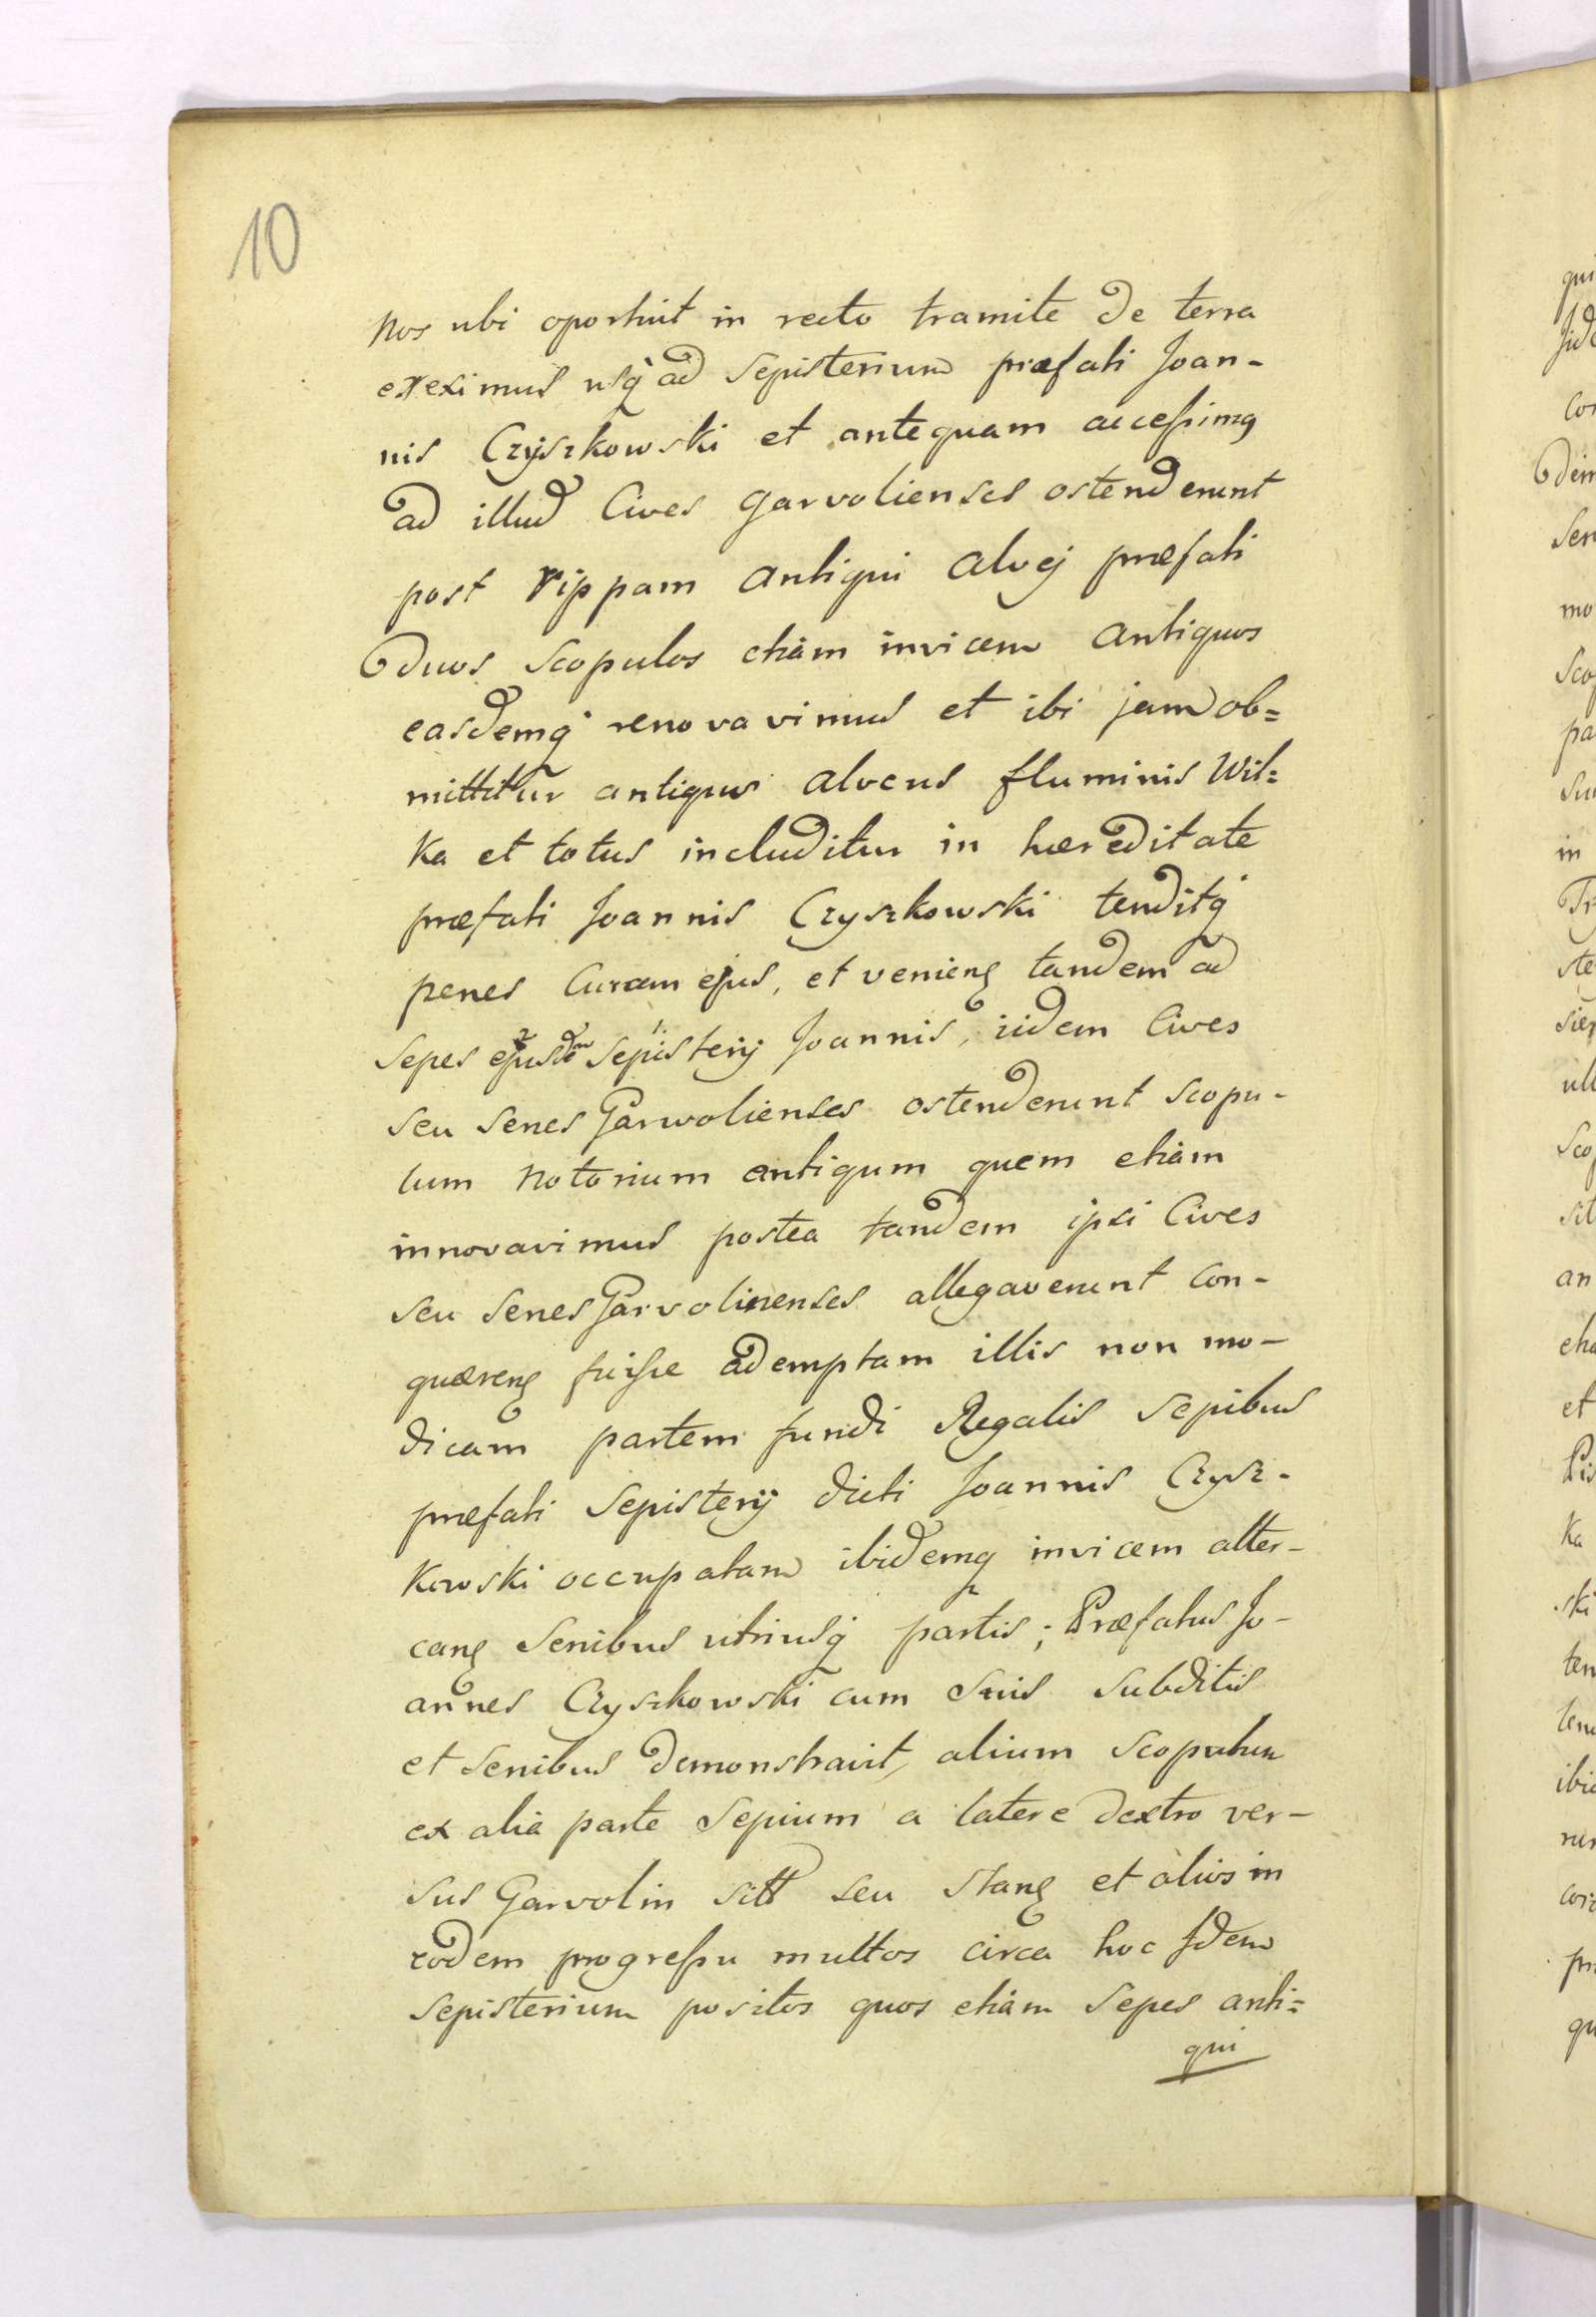 10
nos ubi oportuit in recto tramite de terra
ereximus usq ad Sepisterium præfati Joan-
nis Czÿszkowski et antequam accessimq
ad illud Cives Garvolienses ostenderunt
post rippam antiqui alvej præfati
duos Scopulos etiam invicem antiquos
easdemq renovavimus et ibi jam ob=
mittitur antiquus alveus fluminis Wil=
ka et totus includitur in hæreditate
præfati Joannis Czyszkowski tenditq
penes Curam ejus, et veniens tandem ad
Sepes ejusdem Sepisterij Joannis, iidem Cives
seu Senes Garwolienses ostenderunt Scopu-
lum Notorium antiqum quem etiam
innovavimus postea tandem ipsi Cives
seu Senes Garvolinenses allegaverunt con-
quærens fuisse ademptam illis non mo-
dicam partem fundi Regalis Sepibus
præfati Sepisterij dicti Joannis Czysz-
kowski occupatam ibidemq invicem alter-
cans Senibus utriusq partis; Præfatus Jo-
annes Czyszkowski cum Suis Subditis
et Senibus demonstravit, alium Scopulum
ex alia parte Sepium a latere dextro ver-
sus Garvolin sitt seu stans et alios in
eodem progressu multos circa hoc Idem
Sepisterium positos quos etiam Sepes anti=
qui